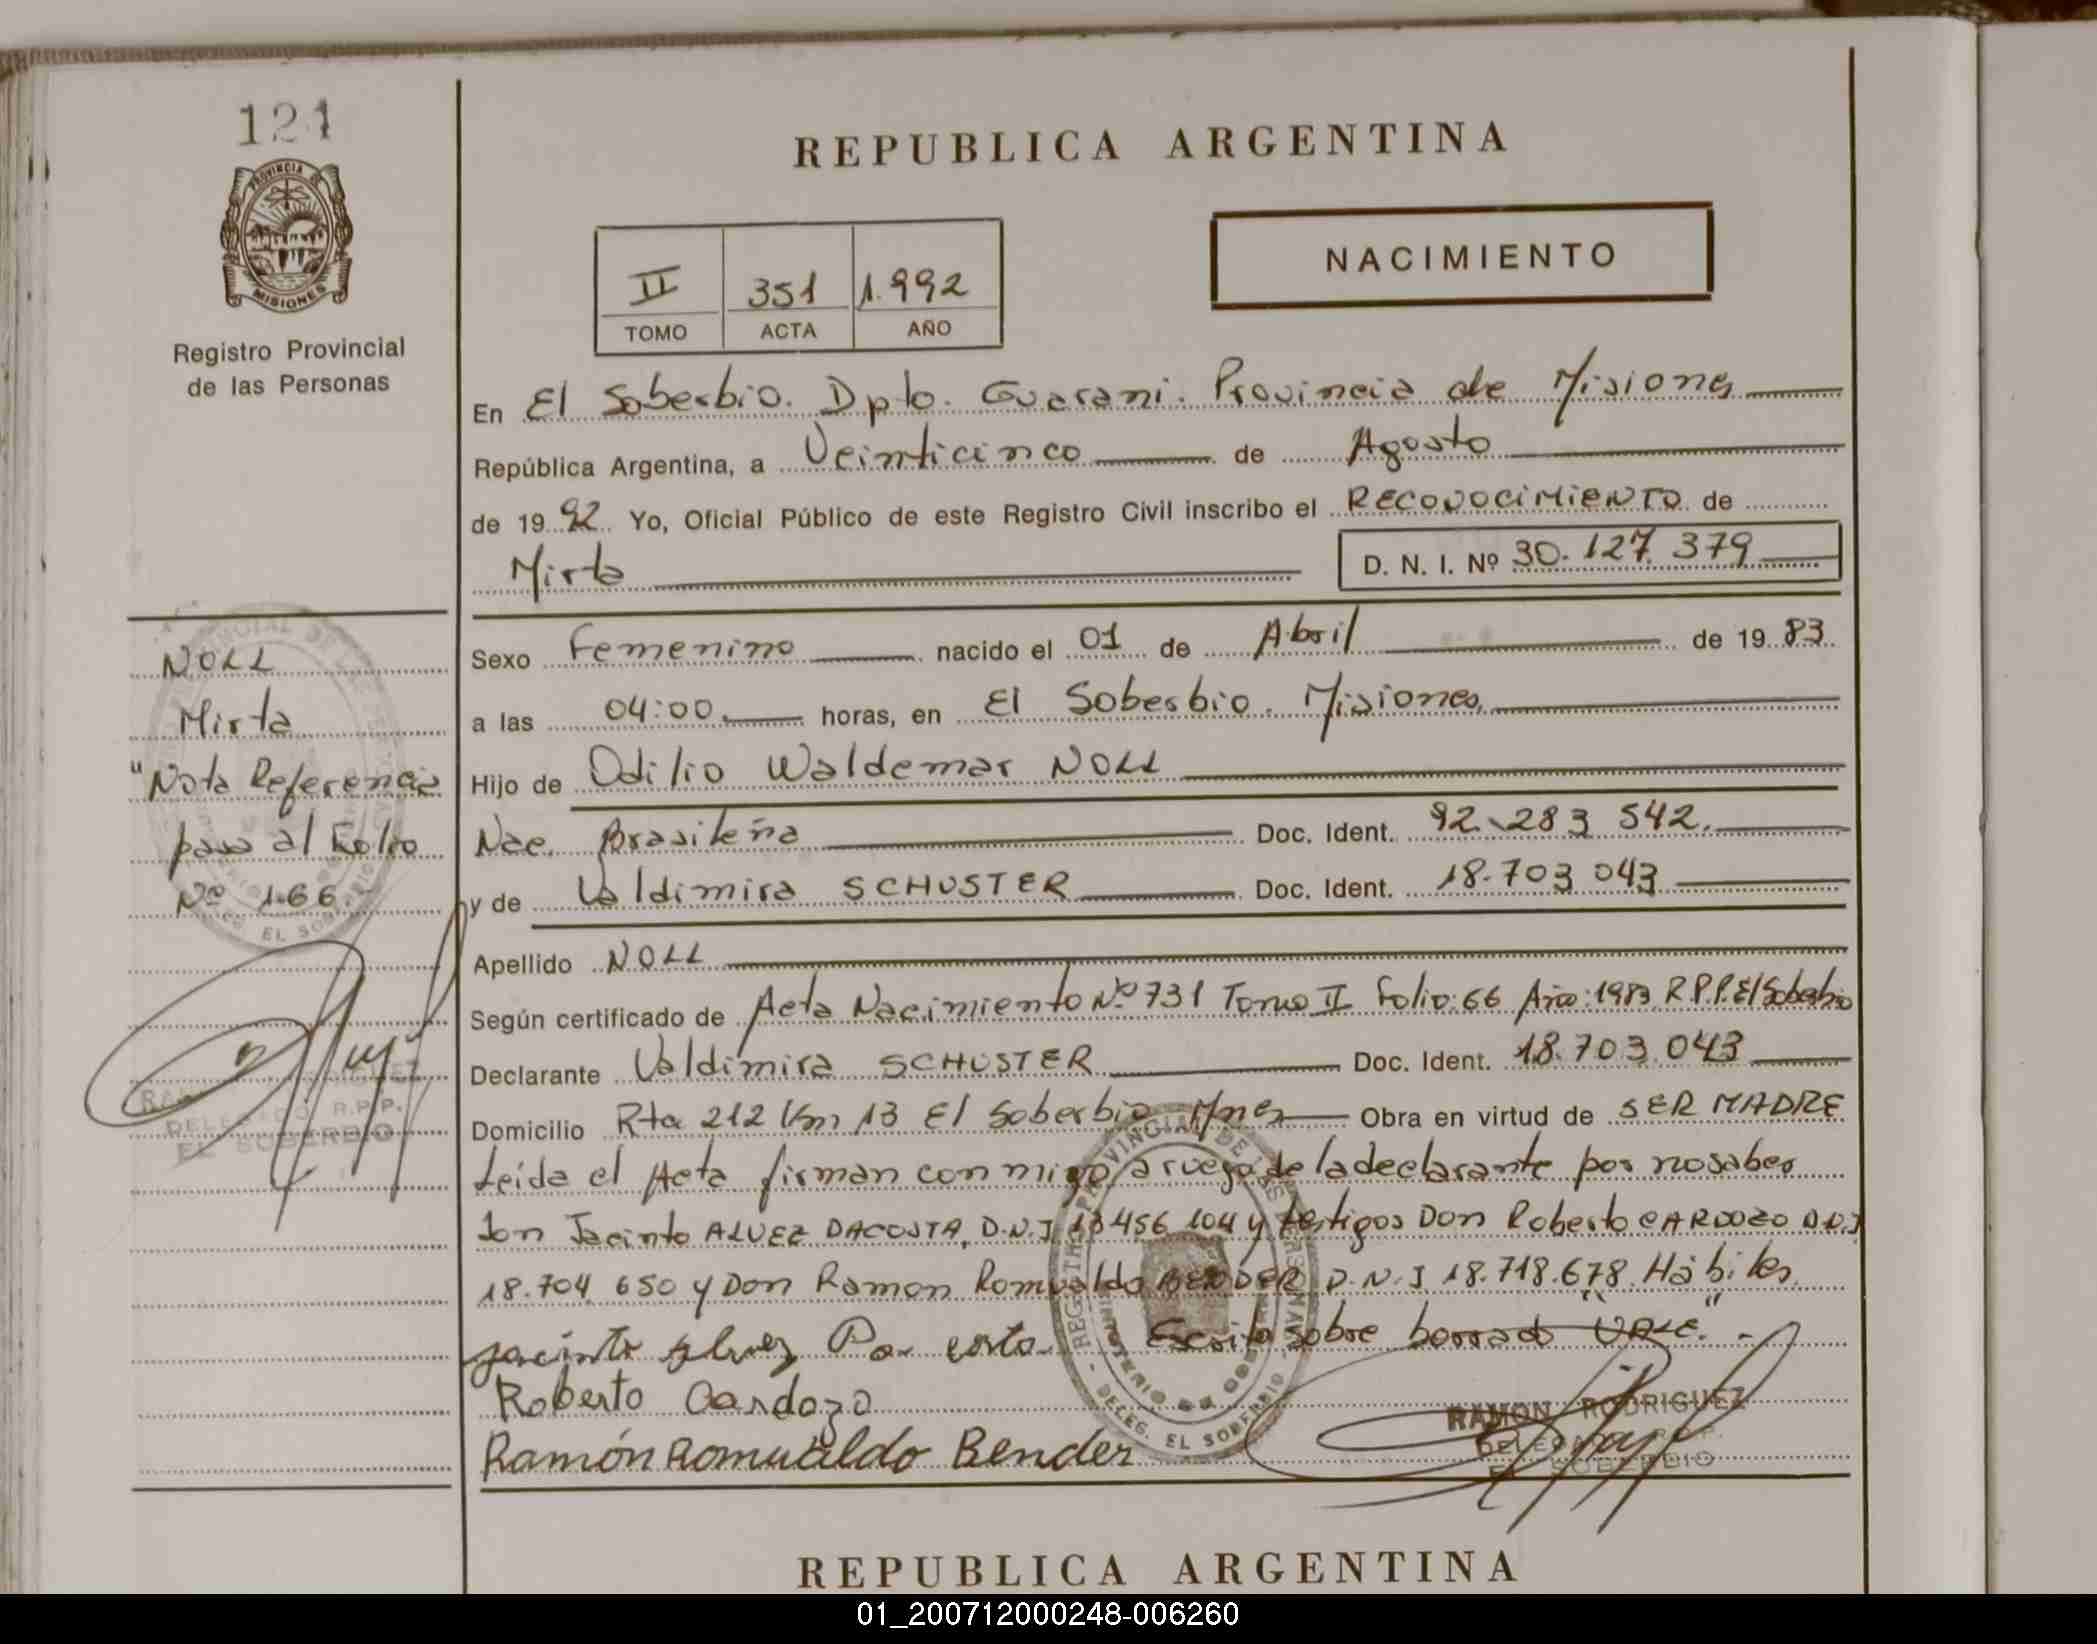 121
PROVINCIA DE
MISIONES
Registro Provincial
de las Personas
REPUBLICA ARGENTINA
NACIMIENTO
II 351 1.992
TOMO ACTA AÑO
En El Soberbio. Dpto. Guarani. Provincia de Misiones
República Argentina, a Veinticinco de Agosto
de 1992 Yo, Oficial Público de este Registro Civil inscribo el RECONOCIMIENTO de
Mirta D. N. I. Nº 30.127.379
Sexo Femenino nacido el 01 de Abril de 1983
a las 04:00 horas, en El Soberbio. Misiones
Hijo de Odilio Waldemar NOLL
Nac. Brasileña Doc. Ident. 92.283 542.
y de Valdimira SCHUSTER Doc. Ident. 18.703 043
Apellido NOLL
Según certificado de Acta Nacimiento Nº 731 Tomo II Folio:66 Año:1983 R.P.P. El Soberbio
Declarante Valdimira SCHUSTER Doc. Ident. 18.703.043
Domicilio Rta 212 Km 13 El Soberbio Mnes Obra en virtud de SER MADRE
Leída el Acta firman con migo, a ruego de la declarante por no saber
Don Jacinto ALVEZ DACOSTA, D.N.I 13 456 104 y testigos Don Roberto CARDOZO D.N.I
18.704 650 y Don Ramon Romualdo BENDER D.N.I 18.718.678 Hábiles
jacinto alvez Da costa Escrito sobre borrado "VALE".-
Roberto Cardozo
Ramón Romualdo Bender
RAMON RODRIGUEZ
DELEGADO R.P.P.
EL SOBERBIO
NOLL
Mirta
"Nota Referencia
pasa al Folio
Nº 166.-
DELEGADO R.P.P.
EL SOBERBIO
REGISTRO PROVINCIAL DE LAS PERSONAS
MINISTERIO DE GOBIERNO
DELEG. EL SOBERBIO
REPUBLICA ARGENTINA
01_200712000248-006260